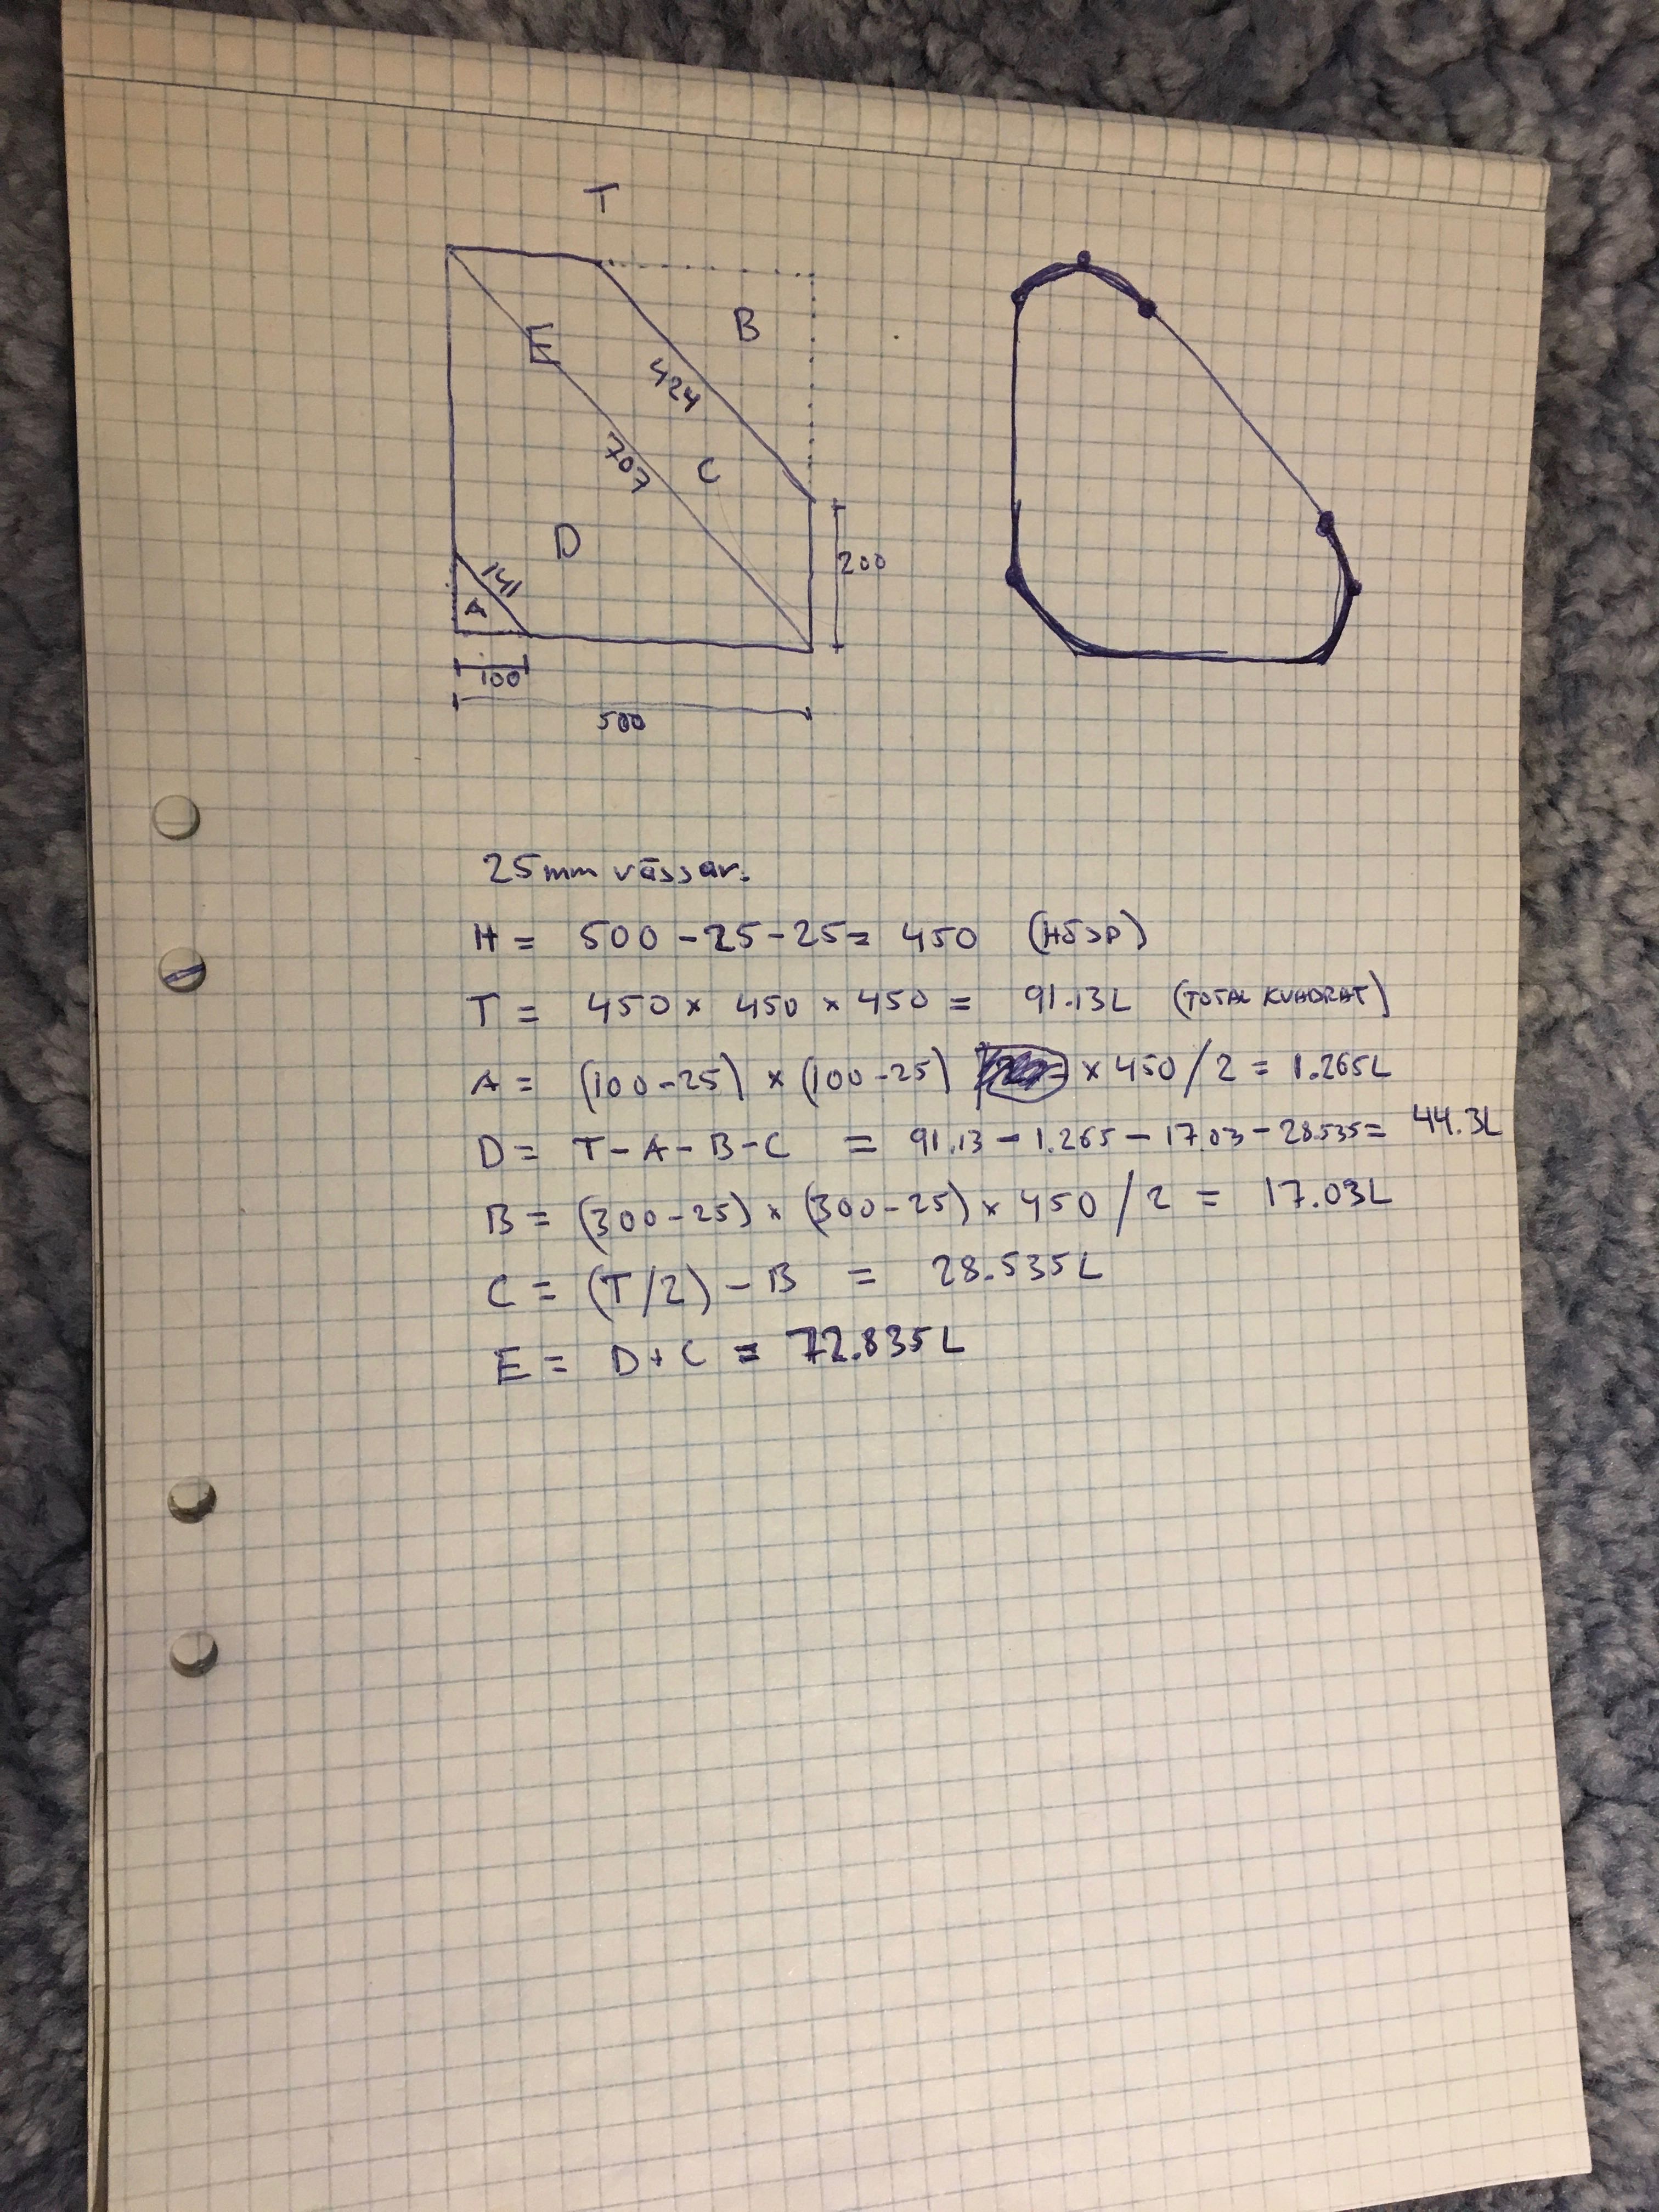 T
B
E
424
C
707
D
141
A
200
100
500
25mm vässar.
H = 500 - 25 - 25 = 450
T = 450 x 450 x 450 = 91.13L (TOTAL KVADRAT)
A = (100-25) x (100-25) x 450/2 = 1.265L
D = T - A - B - C = 91.13 - 1.265 - 17.03 - 28.535 = 44.3L
B = (300-25) x (300-25) x 450/2 = 17.03L
C = (T/2) - B = 28.535L
E = D + C = 72.835L